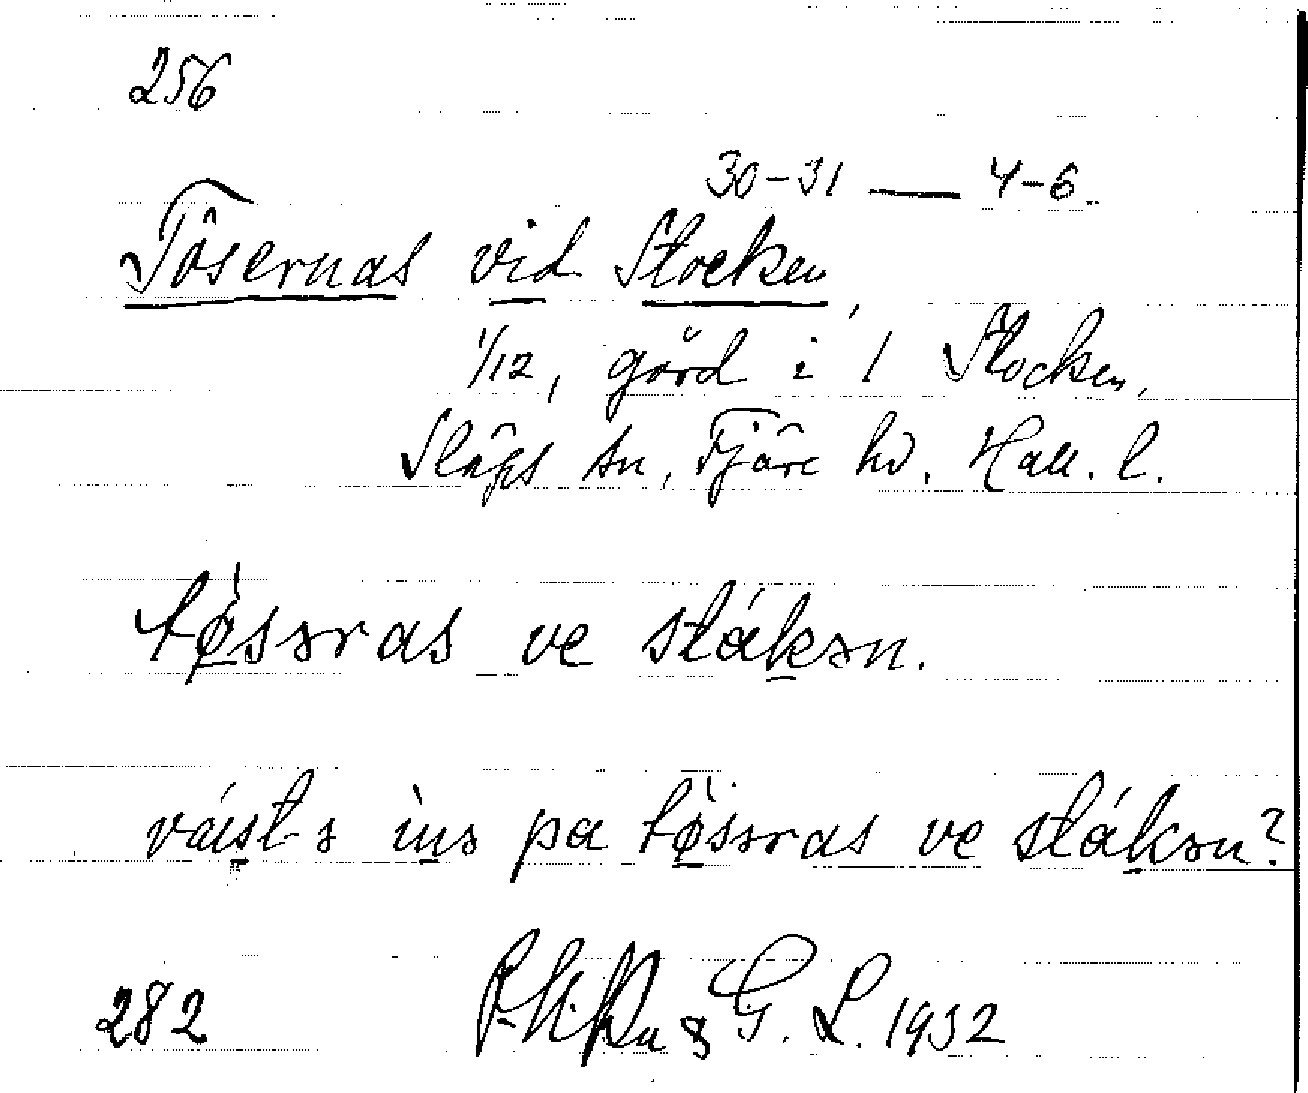 256
30-31 — 4-6
Tösernas vid Stocken,
1/12, gård i 1 Stocken,
Släps sn, Fjäre hd. Hall. l.
tø̀səras ve stákən.
vaıst-ə ìnə pa tø̀səras ve stákən?
282 & G. L. 1932